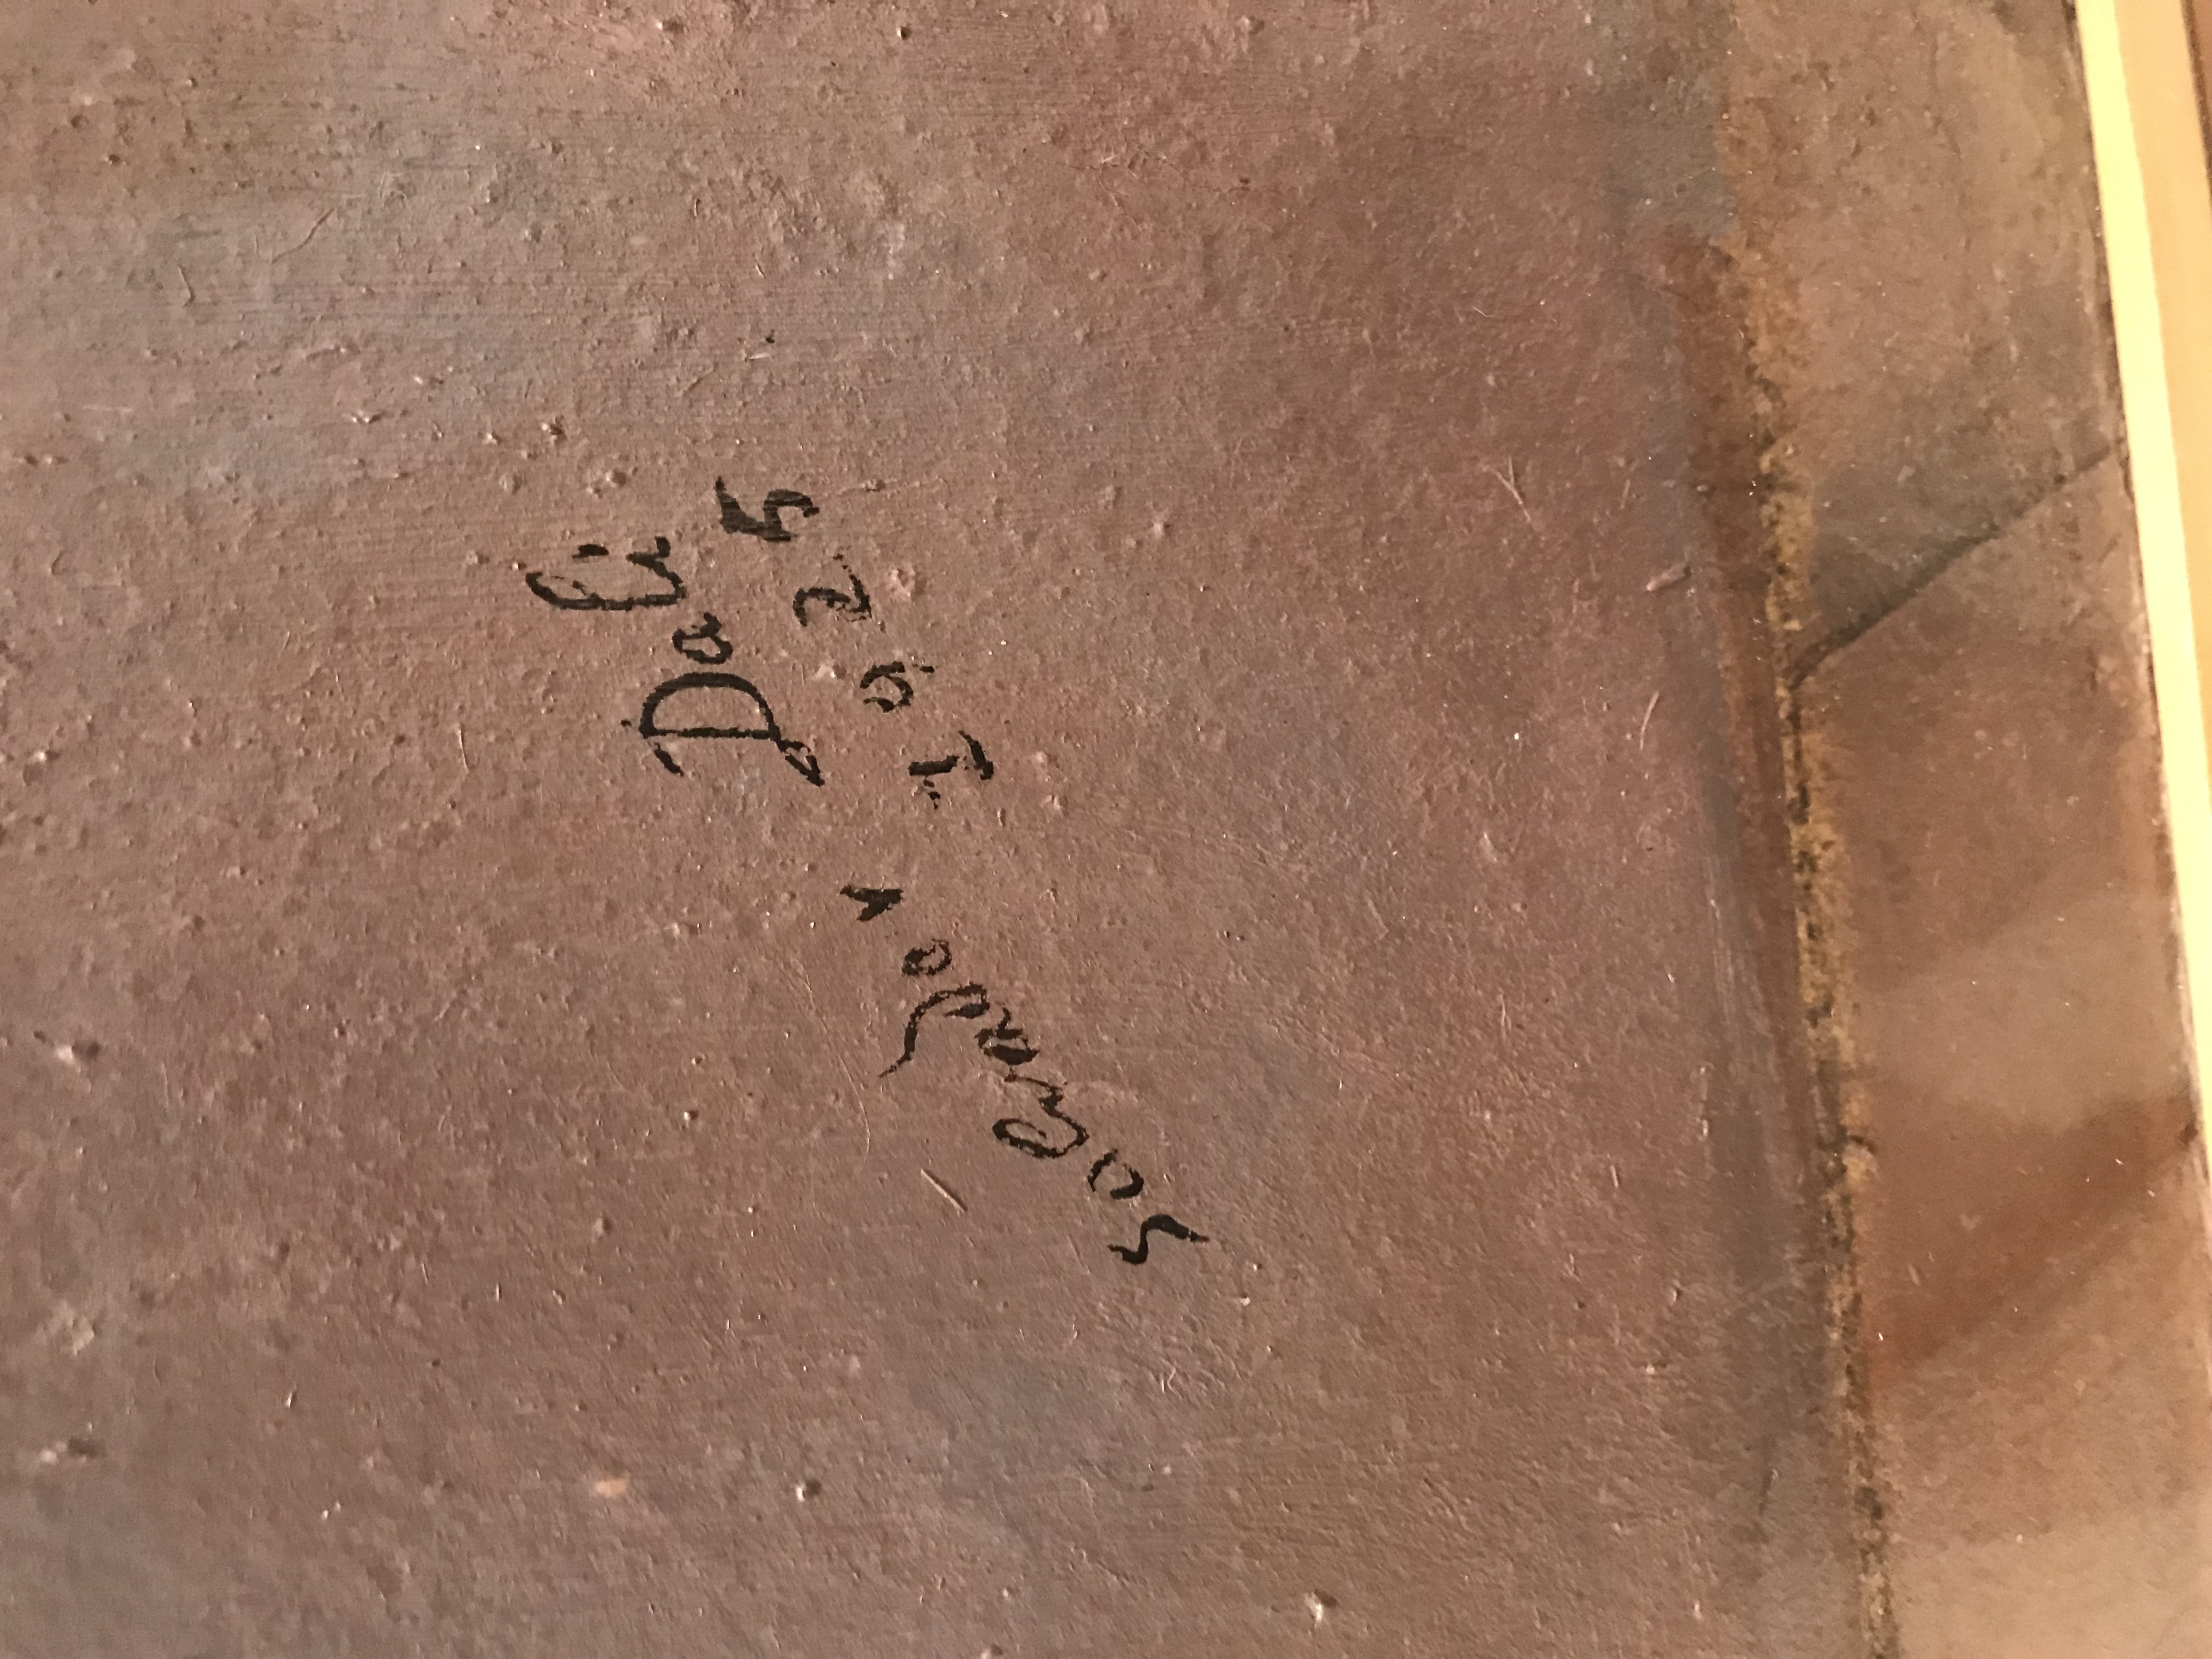 Salvador Dali
1925